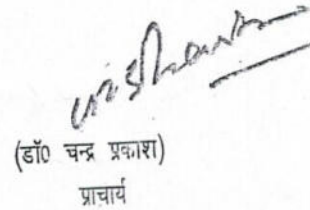 (डॉ0 चन्द्र प्रकाश)
प्राचार्य